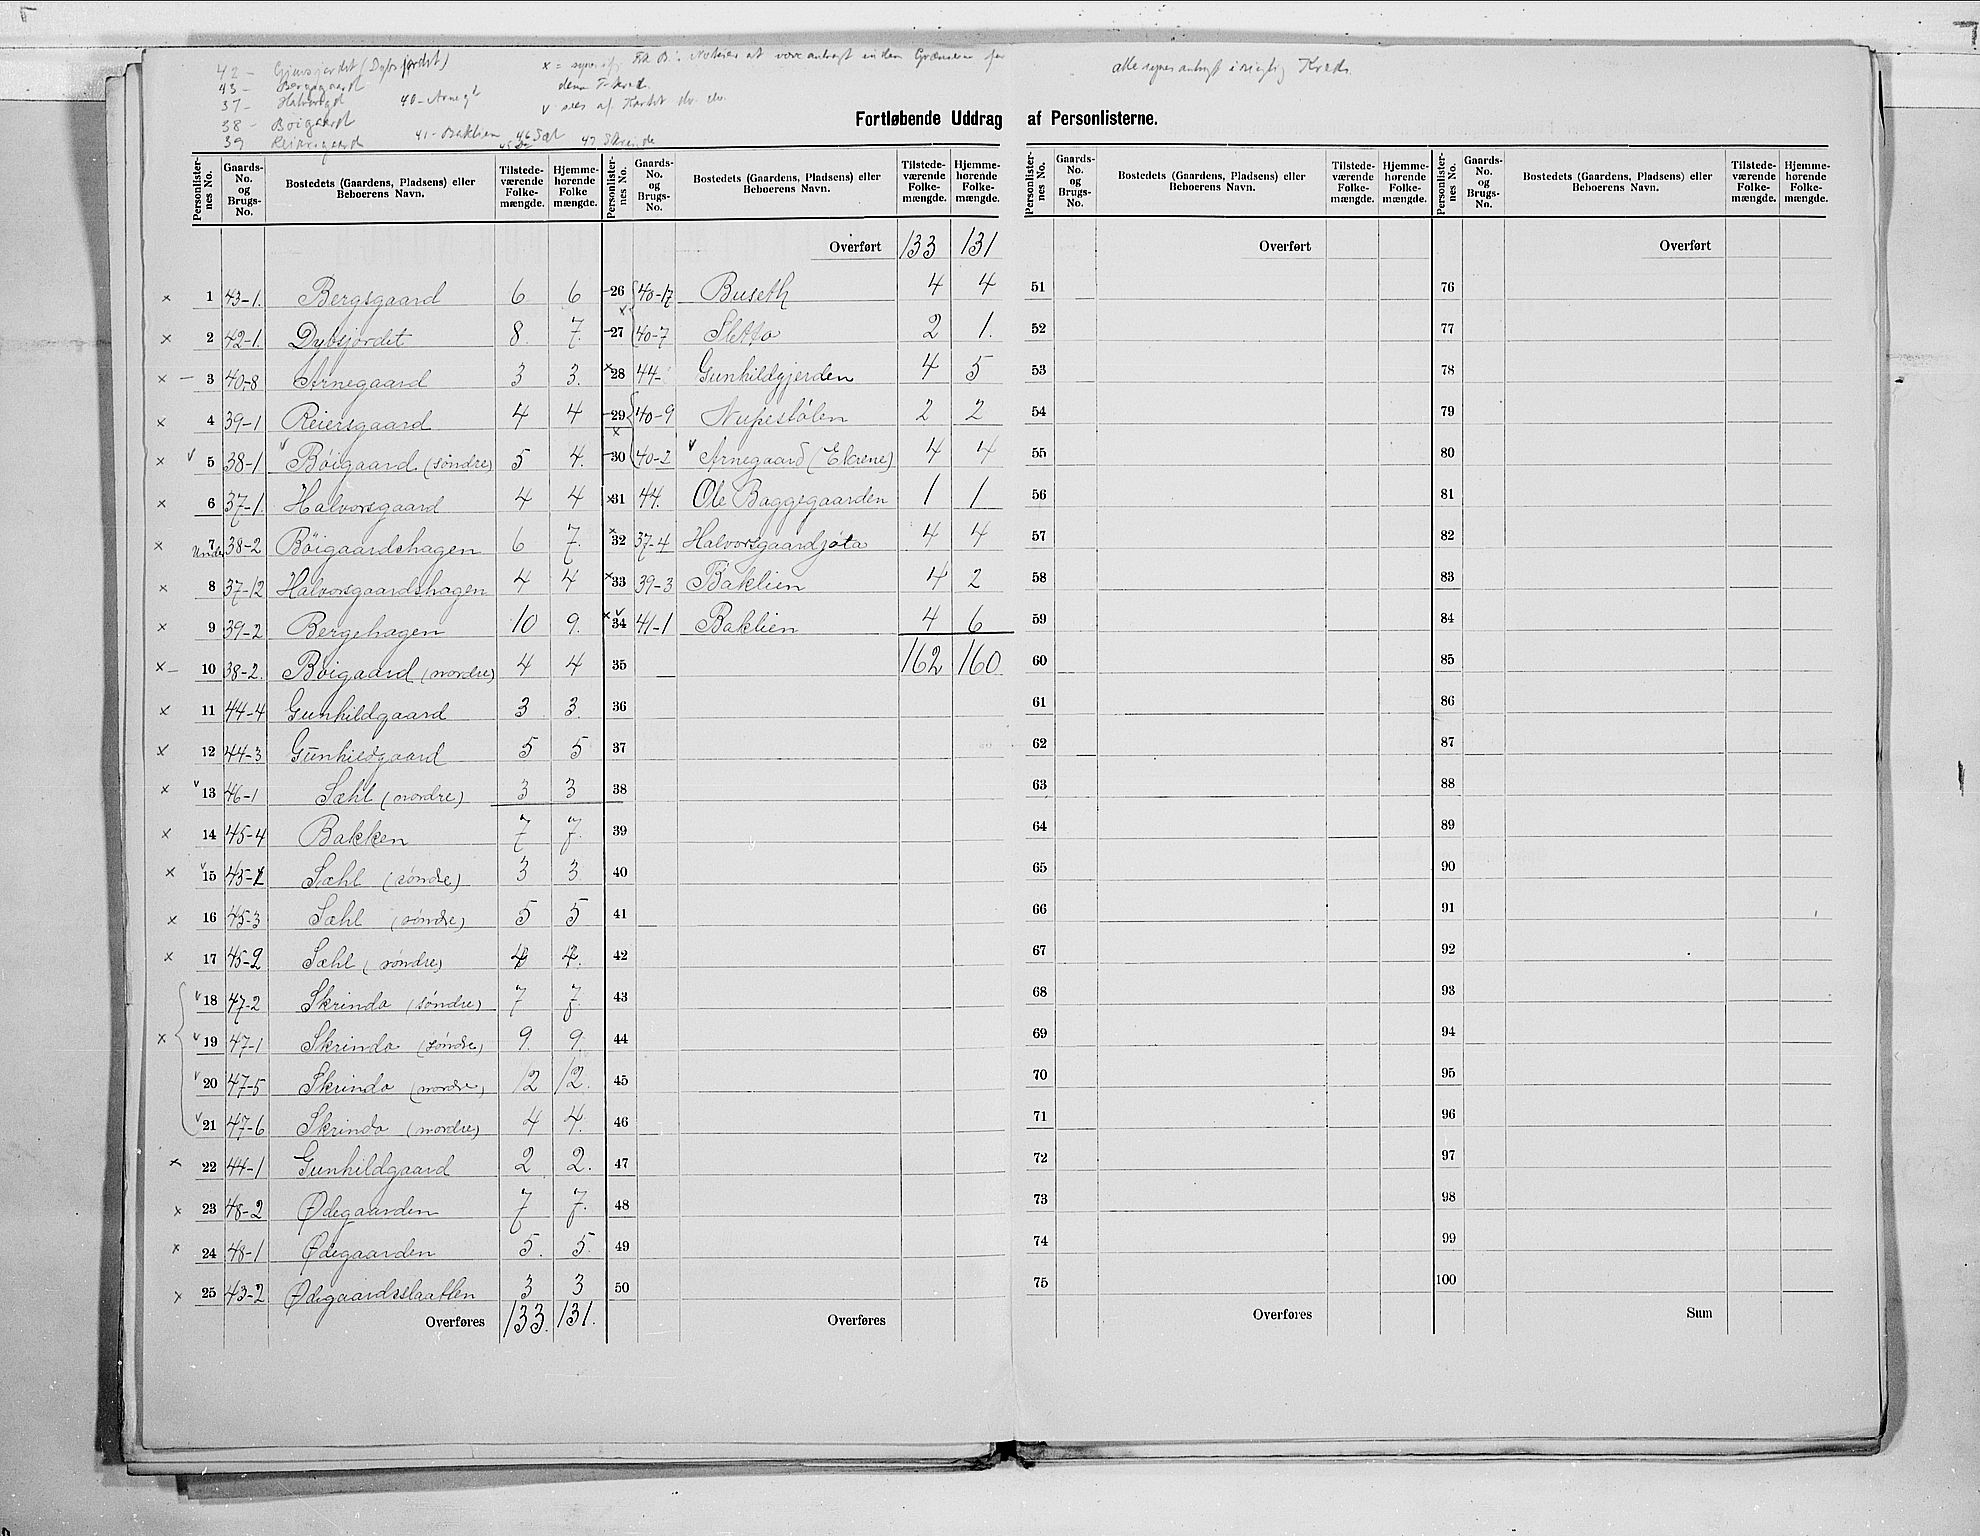 42 - Gjensjordet (Dybsjordet)
43 - Bergsgaard
37 - Halvorsgd 40 - Arnegd
38 - Boigaard
39 Reiersgaard 41 - Baklien 46 Sæl 47 Skrinde
x = synes af Fk B. Noteres at være anbragt inden Grænsen for
denne T-kred.
v sees af Kartet do. do.
alle synes anbragt i rigtig Kreds.
Fortløbende Uddrag af Personlisterne.
Personlister-nes No. Gaards-No. og Brugs-No. Bostedets (Gaardens, Pladsens) eller Beboerens Navn. Tilstede-værende Folke-mængde. Hjemme-hørende Folke mængde.
x 1 43-1. Bergsgaard 6 6
x 2 42-1. Dybsjordet 8. 7.
x — 3 40-8 Arnegaard 3 3.
x 4 39-1 Reiersgaard 4 4
x v 5 38-1 v Böigaard (söndre) 5 4.
x 6 37-1. Halvorsgaard 4 4
x 7 Under 38-2 Böigaardshagen 6 7.
x 8 37-12 Halvorsgaardshagen 4 4
x 9 39-2 Bergehagen 10 9.
x — 10 38-2. Böigaard (nordre) 4 4
x 11 44-4 Gunhildgaard 3 3.
x 12 44-3 Gunhildgaard 5 5
x v 13 46-1 Sæhl (nordre) 3 3
x 14 45-4 Bakken 7 7.
x v 15 45-1 Sæhl (söndre) 3 3
x 16 45-3 Sæhl (söndre) 5 5
x 17 45-2 Sæhl (söndre) 4 4.
v 18 47-2 Skrindo (söndre) 7 7
x v 19 47-1 Skrindo (söndre) 9. 9
v 20 47-5 Skrindo (nordre) 12 12.
v 21 47-6 Skrindo (nordre) 4 4.
x 22 44-1 Gunhildgaard 2 2.
x 23 48-2 Ødegaarden 7 7.
x 24 48-1 Ødegaarden 5. 5.
x 25 43-2 Ødegaardsslaatten 3 3
Overføres 133. 131.
Personlister-nes No. Gaards-No. og Brugs-No. Bostedets (Gaardens, Pladsens) eller Beboerens Navn. Tilstede-værende Folke-mængde. Hjemme-hørende Folke-mængde.
Overført 133 131
26 40-17 Buseth 4 4
27 40-7 Sletto 2 1.
x 28 44- Gunhildgjerden 4 5
29 40-9 Nupestölen 2 2
x 30 40-2 v Arnegaard (Ekrene) 4 4
x 31 44. Ole Baggegaarden 1 1
x 32 37-4 Halvorsgaardjøta 4 4
x 33 39-3 Baklien 4 2
x v 34 41-1 Baklien 4 6
35 162 160
36
37
38
39
40
41
42
43
44
45
46
47
48
49
50
Overføres
Personlister-nes No. Gaards-No. og Brugs-No. Bostedets (Gaardens, Pladsens) eller Beboerens Navn. Tilstede-værende Folke-mængde. Hjemme-hørende Folke-mængde.
Overført
51
52
53
54
55
56
57
58
59
60
61
62
63
64
65
66
67
68
69
70
71
72
73
74
75
Overføres
Personlister-nes No. Gaards-No. og Brugs-No. Bostedets (Gaardens, Pladsens) eller Beboerens Navn. Tilstede-værende Folke-mængde. Hjemme-hørende Folke-mængde.
Overført
76
77
78
79
80
81
82
83
84
85
86
87
88
89
90
91
92
93
94
95
96
97
98
99
100
Sum